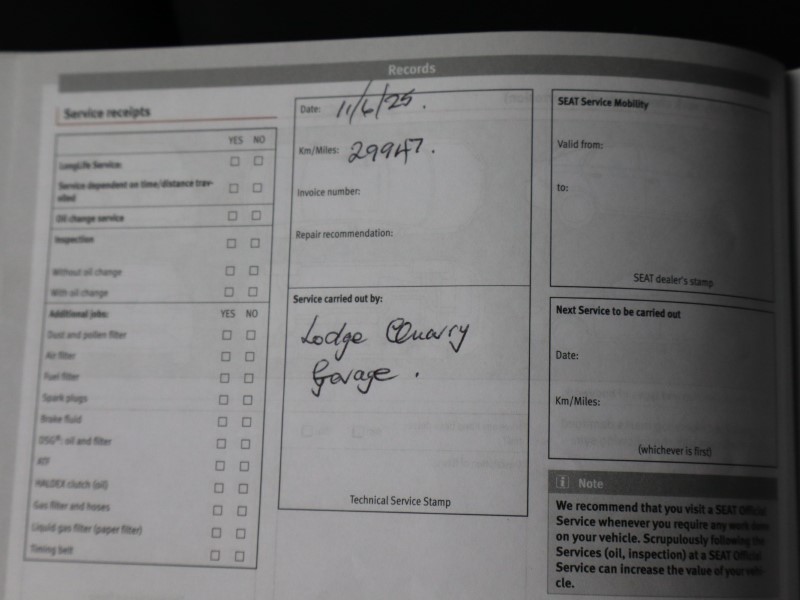 Records
Service receipts
YES NO
LongLife Service:
Service dependent on time/distance trav-
elled
Oil change service
Inspection
Without oil change
With oil change
Additional jobs: YES NO
Dust and pollen filter
Air filter
Fuel filter
Spark plugs
Brake fluid
DSG®: oil and filter
ATF
HALDEX clutch (oil)
Gas filter and hoses
Liquid gas filter (paper filter)
Timing belt
Date: 11/6/25.
Km/Miles: 29947.
Invoice number:
Repair recommendation:
Service carried out by:
Lodge Quarry
Garage.
Technical Service Stamp
SEAT Service Mobility
Valid from:
to:
SEAT dealer's stamp
Next Service to be carried out
Date:
Km/Miles:
(whichever is first)
i Note
We recommend that you visit a SEAT Official
Service whenever you require any work done
on your vehicle. Scrupulously following the
Services (oil, inspection) at a SEAT Official
Service can increase the value of your vehi-
cle.